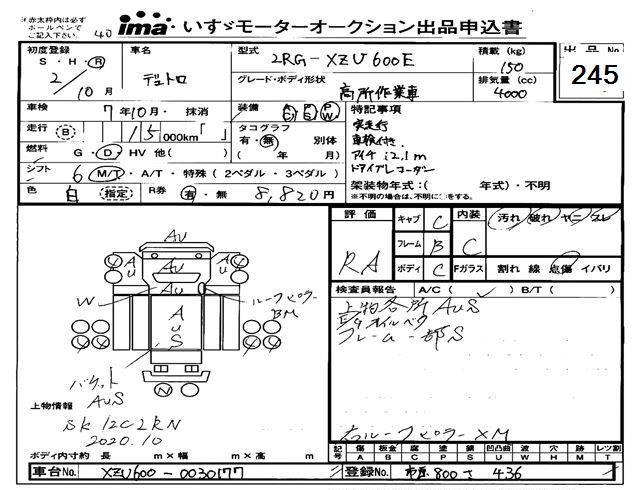 ※赤太枠内は必ず
ボールペンで
ご記入下さい。
40
ima いすゞモーターオークション出品申込書
初度登録
S・H・R
2/10月
車名
デュトロ
型式
2RG-XZU600E
グレード・ボディ形状
高所作業車
積載 (kg)
150
排気量 (cc)
4000
出品 No
245
車検 7年10月・抹消
走行 B 15 000km「 」
燃料 G・D・HV 他( )
シフト 6 M/T・A/T・特殊 ( 2ペダル・3ペダル )
色 白 (指定) R券 有・無 8,820円
装備 A/C P/S P/W
タコグラフ
有・無 別体
( 年 月)
特記事項
実走行
車検付き
アイチ 12.1m
ドライブレコーダー
架装物年式:( 年式)・不明
※不明の場合は、不明に○をする。
評価 RA
キャブ C
フレーム B
ボディ C
内装 C
汚れ 破れ ヤニ スレ
Fガラス 割れ 線 点傷 イバリ
検査員報告 A/C( ) B/T( )
上物各所AUS
E/gオイルベタ
フレーム一部S
右ルーフピラーXM
AU
AU
AU
AU
W
AUS
ルーフピラー
BM
N
バケット
AUS
上物情報
SK12C2RN
2020.10
ボディ内寸約 長 m×幅 m×高 m
記号 傷 板金 腐 塗 錆 凹凸曲 波 穴 跡 レツ割
A B C P S U W H M T
車台No. XZU600-0030177
登録No. 800 さ 436